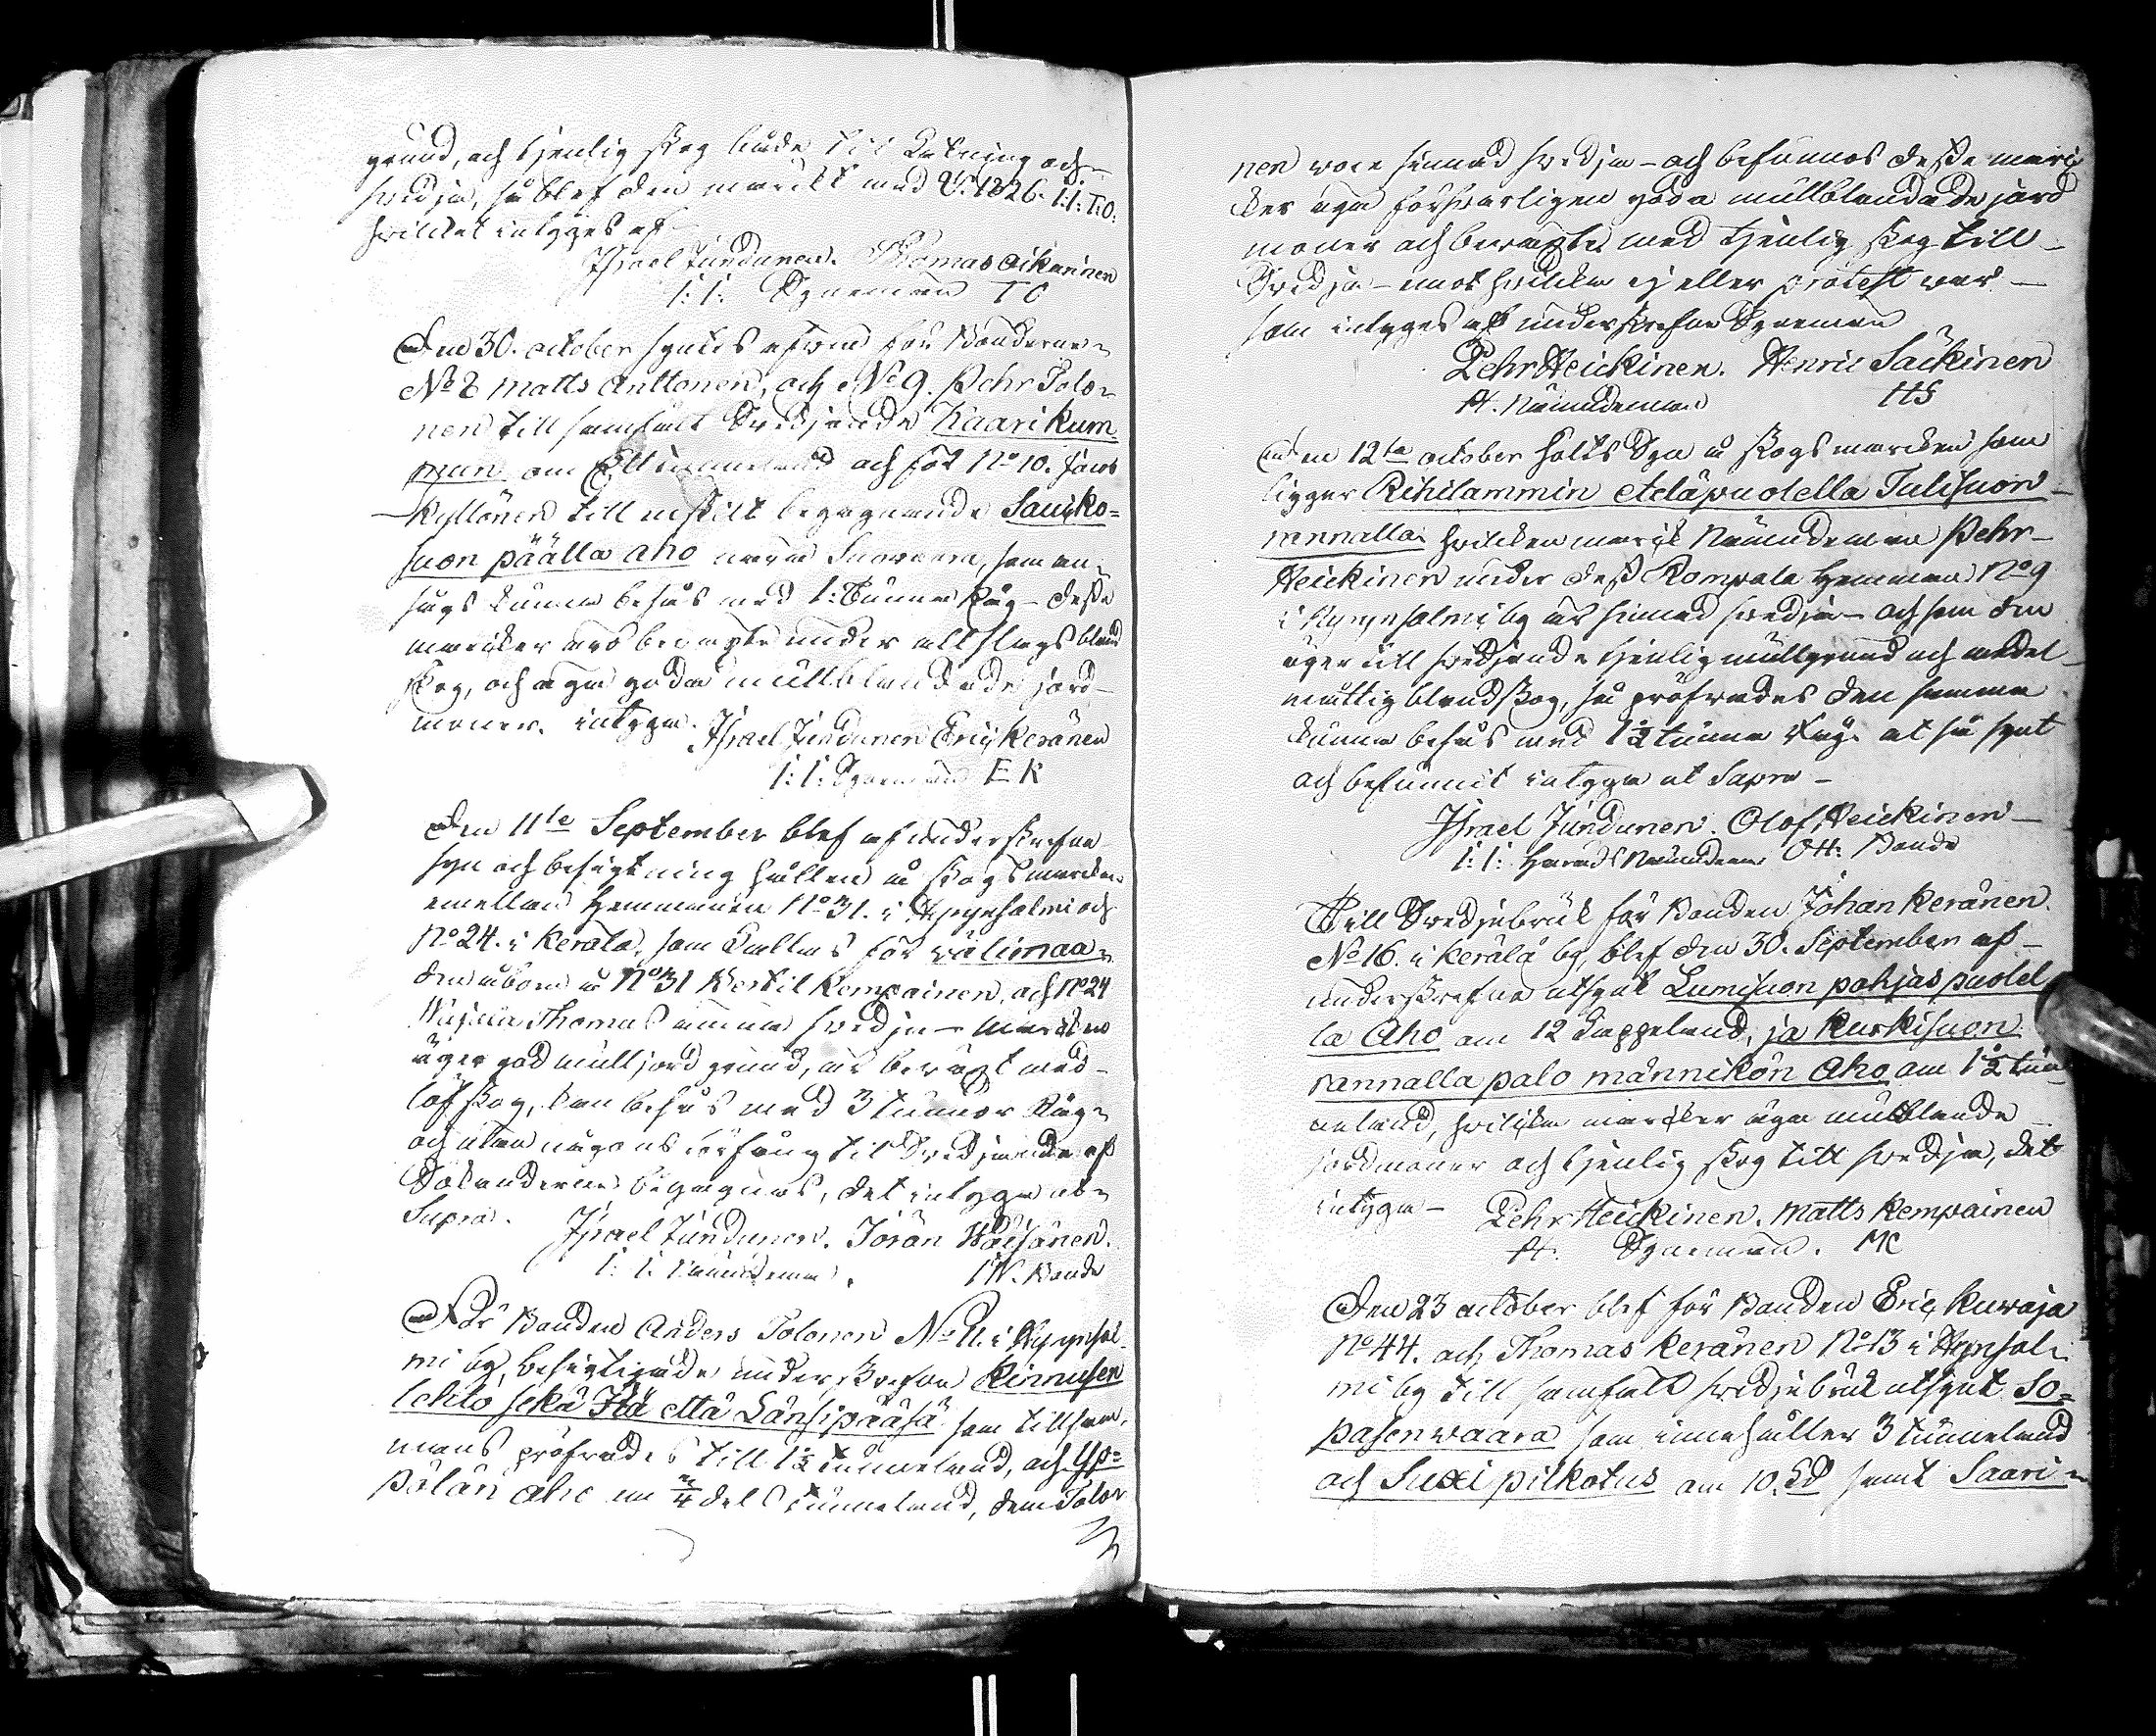 grund, och tjenlig skog både till Rökning och
svedja, så blef den märckt med År 1826. I:I: T:O:
hvilcket intygas af
Israel Jundunen. Thomas Oikarinen
I: I: Syneman T O
Den 30. october syntes afven för Bönderne
No 8 Matts Anttonen, och No 9. Pehr Tolo-
nen till samfält Svedjande Kaarikum-
mun om Ett tunneland och för No 10. Jacob
Kyllönen till enskilt begagnande Sauiko-
suon päälla aho som an-
sågs kunna besås med 1: Tunna Råg - desse
marcker äro bevägte under altslags bland
skog, och äga goda mullblandade jord-
moner. intyga.
Israel Jundunen Eric Keränen
I: I: Syneman E K
Den 11te September blef af underskrefne
syn och besigtning hållen å skogsmarcken
emellan Hemmanen No 31. i Hyrynsalmi och
No 24. i Kerälä, som kallas för välimaa-
den åboen å No 31 Bertil Kempainen, och No 24
Thomas ämna svedja - Marcken
äger god mulljord grund, är beväxt med
löfskog, kan besås med 3 tunnor Råg
och utan någons förfång til Svedjande af
Sökanderne begagnas, det intyga ut
Supra.
Israel Jundunen. Jöran Wäisänen.
I: I: Nämndeman. IW. Bonde
För Bonden Anders Tolonen No 11. i Hyrynsal-
mi by, besigtigade underskrefne Kinnusen
lehto sekä Itä että Länsipääsä som tillsam-
mans pröfvades till 1½ tunneland, och Yp-
pölän aho om ¾ dels tunneland, dem Tolo-
nen vore sinnad svedja - och befunnos desse marc-
ker äga försvarligen goda mullblandade jord
moner och beväxte med tjenlig skog till
Svedja - emot hvilcka ej eller protest var
som intygas af underskrefne Synemän
Pehr Heickinen. Henric Säckinen
H. Nämndeman HS
Den 12te october hölts Syn å skogsmarcken som
ligger Riihilammin eteläpuolella Tulisuon
rannalla, hvilcken marck Nämndeman Pehr
Heickinen under dess Rompala Hemman No 9
i Hyrynsalmi by är sinnad svedja - och som den
äger till svedjande tjenlig mullgrund och medel
måttig blandskog, så pröfvades den samma
kunna besås med 1½ tunna Råg. at så synt
och befunnit intyga ut Supra -
Israel Jundunen. Olof Heickinen
I: I: Härads Nämndeman OH: Bonde
Till Svedjebruk för Bonden Johan Keränen
No 16. i Kerälä by, blef den 30. September af
underskrefne utsynt Lumisuon pohjaspuolel
la Aho om 12 kappeland, ja Kurkisuon
rannalla palo männikön Aho om 1½ tun-
neland, hvilcka marcker äga mullblande
jordmoner och tjenlig skog till svedja, det
intyga - Pehr Heickinen. Matts Kempainen
H. Syneman. MK
Den 23 october blef för Bonden Eric Kuvaja
No 44. och Thomas Keränen No 13 i Hyrynsal-
mi by till samfält svedjebruk utsynt So-
pasenvaara som innehåller 3 tunneland
och Suxi pilkotus om 10. samt Saari-